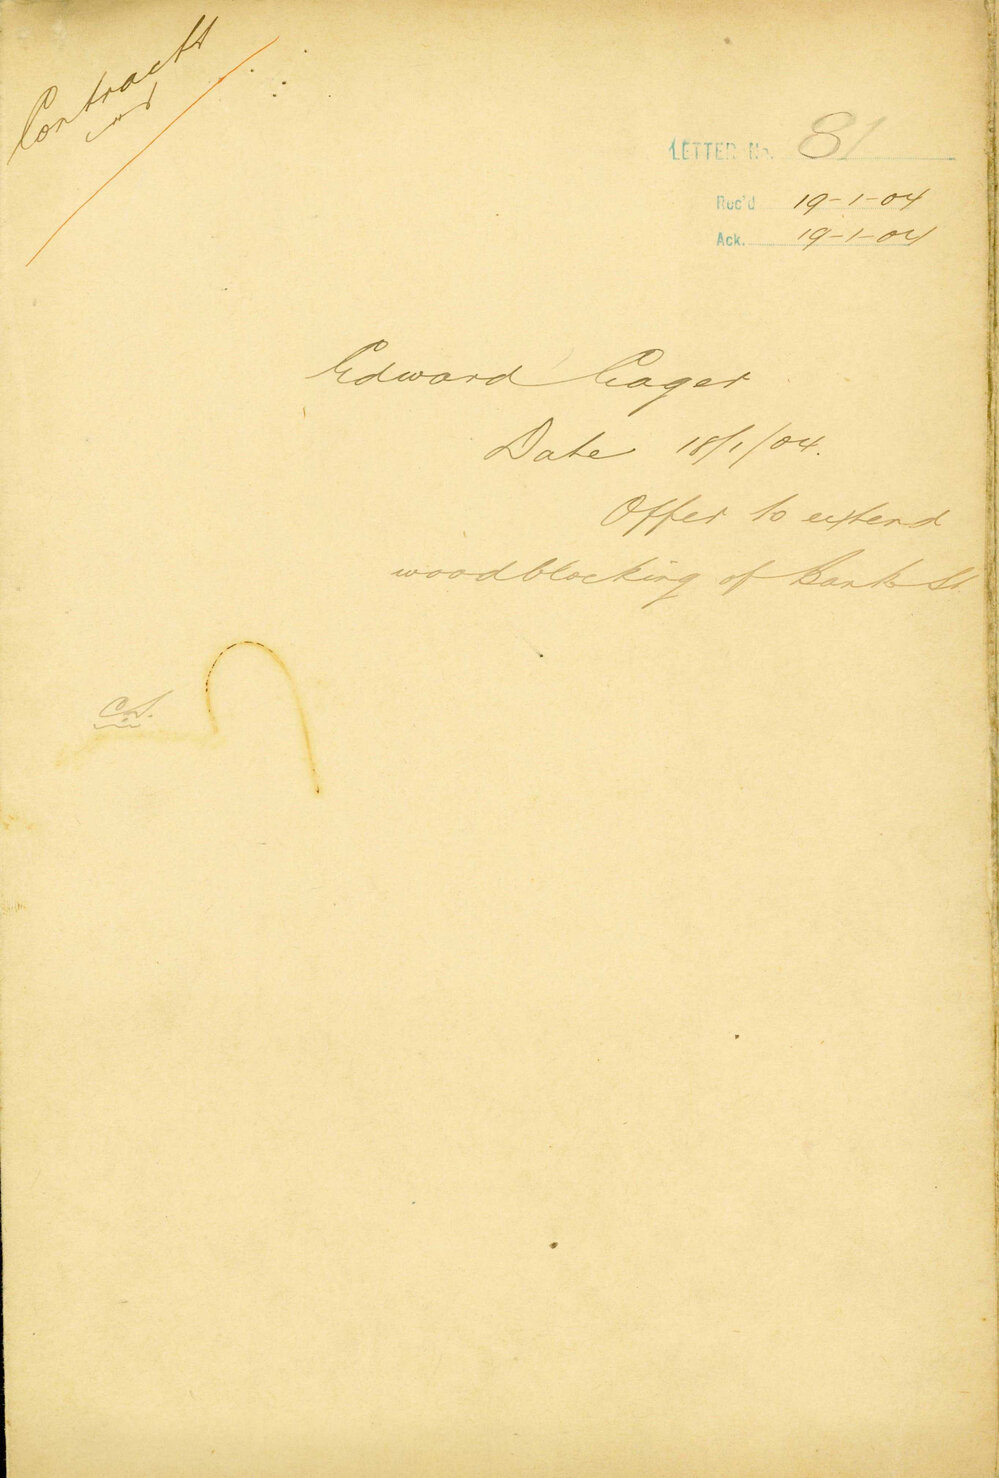 Contracts
LETTER No. 81
Rec'd 19-1-04
Ack. 19-1-04
Edward Eager
Date 18/1/04.
Offer to extend
woodblocking of Bank St